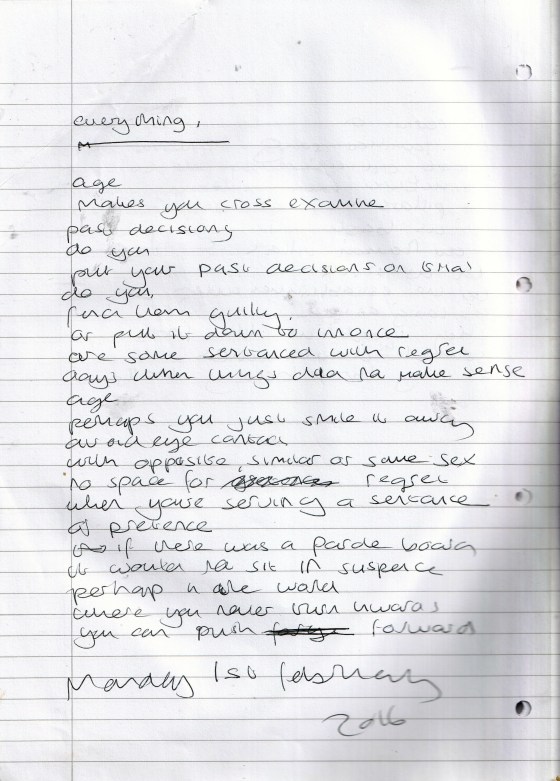 everything,
age
makes you cross examine
past decisions
do you
put your past decisions on trial
do you,
find them guilty.
or put it down to
are some sentanced with regret
days when things did na make sense
age
perhaps you just smile it away
avoid eye contact
with opposite, similar or same sex
no space for regret
when youre serving a sentance
of pretence
if there was a parde board
it would na sit in suspence
perhap n world
where you never turn inwards
you can push forward
Monday 1st february
2016